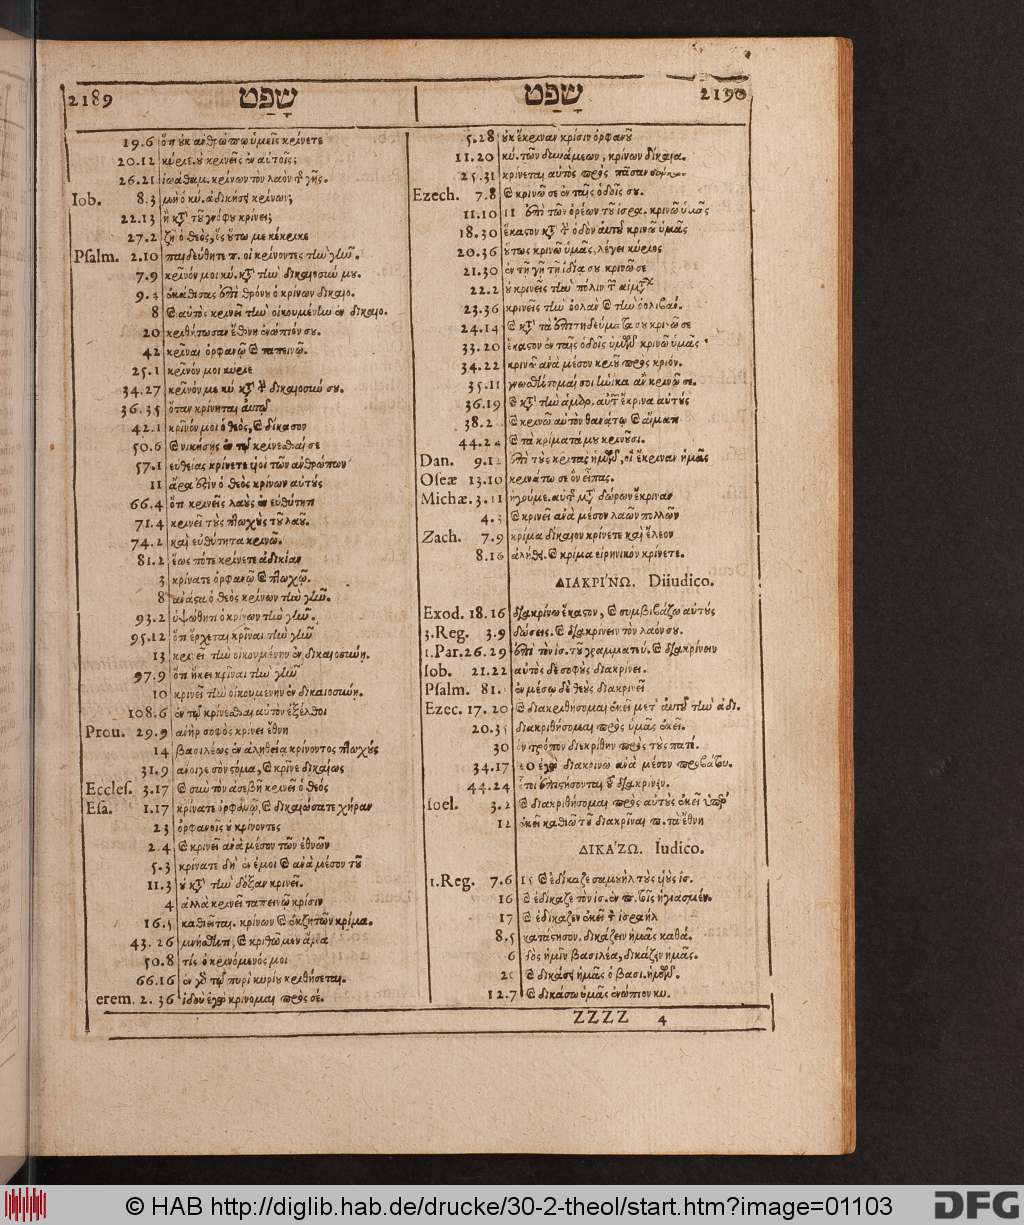 2189 שָׁפַט
19.6 ὅτι οὐκ ἀνθρώπῳ ὑμεῖς κρίνετε
20.12 κύριε. οὐ κρινεῖς ἐν αὐτοῖς;
26.21 ἰωάθαμ. κρίνων τὸν λαὸν τῆς γῆς.
Iob. 8.3 μὴ ὁ κύ. ἀδικήσει κρίνων;
22.13 ἢ κατὰ τοῦ γνόφου κρίνει;
27.2 ζῇ ὁ θεὸς, ὃς οὕτω με κέκρικε
Psalm. 2.10 παιδεύθητε π. οἱ κρίνοντες τὴν γῆν.
7.9 κρῖνόν μοι κύ. κατὰ τὴν δικαιοσύνην μου.
9.4 ἐκάθισας ἐπὶ θρόνου ὁ κρίνων δικαιο.
8 καὶ αὐτὸς κρινεῖ τὴν οἰκουμένην ἐν δικαιο.
20 κριθήτωσαν ἔθνη ἐνώπιόν σου.
42 κρῖναι ὀρφανῷ καὶ ταπεινῷ.
25.1 κρῖνόν μοι κύριε
34.27 κρῖνόν με κύ. κατὰ τὴν δικαιοσύνην σου.
36.35 ὅταν κρίνηται αὐτῷ
42.1 κρῖνόν μοι ὁ θεὸς, καὶ δίκασον
50.6 καὶ νικήσῃς ἐν τῷ κρίνεσθαί σε
57.1 εὐθείας κρίνετε υἱοὶ τῶν ἀνθρώπων
11 ἄρα ἐστὶν ὁ θεὸς κρίνων αὐτούς
66.4 ὅτι κρινεῖς λαοὺς ἐν εὐθύτητι
71.4 κρινεῖ τοὺς πτωχοὺς τοῦ λαοῦ.
74.2 καὶ εὐθύτητα κρινῶ.
81.2 ἕως πότε κρίνετε ἀδικίαν
3 κρίνατε ὀρφανῷ καὶ πτωχῷ.
8 ἀνάστα ὁ θεὸς κρίνων τὴν γῆν.
93.2 ὑψώθητι ὁ κρίνων τὴν γῆν.
95.12 ὅτι ἔρχεται κρῖναι τὴν γῆν
13 κρινεῖ τὴν οἰκουμένην ἐν δικαιοσύνῃ.
97.9 ὅτι ἥκει κρῖναι τὴν γῆν
10 κρινεῖ τὴν οἰκουμένην ἐν δικαιοσύνῃ.
108.6 ἐν τῷ κρίνεσθαι αὐτὸν ἐξέλθοι
Prou. 29.9 ἀνὴρ σοφὸς κρινεῖ ἔθνη
14 βασιλέως ἐν ἀληθείᾳ κρίνοντος πτωχούς
31.9 ἄνοιγε σὸν στόμα, καὶ κρῖνε δικαίως
Eccles. 3.17 καὶ σὺν τὸν ἀσεβῆ κρινεῖ ὁ θεός
Esa. 1.17 κρίνατε ὀρφανῷ, καὶ δικαιώσατε χήραν
23 ὀρφανοῖς οὐ κρίνοντες
2.4 καὶ κρινεῖ ἀνὰ μέσον τῶν ἐθνῶν
5.3 κρίνατε δὴ ἐν ἐμοὶ καὶ ἀνὰ μέσον τοῦ
11.3 οὐ κατὰ τὴν δόξαν κρινεῖ.
4 ἀλλὰ κρινεῖ ταπεινῷ κρίσιν
16.5 καθιεῖται. κρίνων καὶ ἐκζητῶν κρίμα.
43.26 μνήσθητι, καὶ κριθῶμεν ἅμα
50.8 τίς ὁ κρινόμενός μοι
66.16 ἐν γὰρ τῷ πυρὶ κυρίου κριθήσεται.
erem. 2.36 ἰδοὺ ἐγὼ κρίνομαι πρὸς σέ.
שָׁפַט 2190
5.28 οὐκ ἔκριναν κρίσιν ὀρφανοῦ
11.20 κύ. τῶν δυνάμεων, κρίνων δίκαια.
25.31 κρίνεται αὐτὸς πρὸς πᾶσαν
Ezech. 7.8 καὶ κρινῶ σε ἐν ταῖς ὁδοῖς σου.
11.10 11 ἐπὶ τῶν ὁρέων τοῦ ἰσρα. κρινῶ ὑμᾶς
18.30 ἕκαστον κατὰ τὴν ὁδὸν αὐτοῦ κρινῶ ὑμᾶς
20.36 οὕτως κρινῶ ὑμᾶς, λέγει κύριος
21.30 ἐν τῇ γῇ τῇ ἰδίᾳ σου κρινῶ σε
22.2 οὐ κρινεῖς τὴν πόλιν τῶν αἱμάτων
23.36 κρινεῖς τὴν ὀολὰν καὶ τὴν ὀολιβάν.
24.14 καὶ κατὰ τὰ ἐπιτηδεύματα σου κρινῶ σε
33.20 ἕκαστον ἐν ταῖς ὁδοῖς ὑμῶν κρινῶ ὑμᾶς
34.22 κρινῶ ἀνὰ μέσον κριοῦ πρὸς κριόν.
35.11 γνωσθήσομαί σοι ἡνίκα ἂν κρινῶ σε.
36.19 καὶ κατὰ τὴν ἁμάρ. αὐτῶν ἔκρινα αὐτούς
38.2 καὶ κρινῶ αὐτὸν θανάτῳ καὶ αἵματι
44.24 καὶ τὰ κρίματά μου κρινοῦσι.
Dan. 9.12 ἐπὶ τοὺς κριτὰς ἡμῶν, οἳ ἔκριναν ἡμᾶς
Oseæ 13.10 κρινάτω σε ὃν εἶπας.
Michæ. 3.11 ἡγούμε. αὐτῶν μετὰ δώρων ἔκριναν
4.3 καὶ κρινεῖ ἀνὰ μέσον λαῶν πολλῶν
Zach. 7.9 κρίμα δίκαιον κρίνετε καὶ ἔλεον
8.16 ἀλήθει. καὶ κρίμα εἰρηνικὸν κρίνετε.
ΔΙΑΚΡΊΝΩ. Diiudico.
Exod. 18.16 διακρίνω ἕκαστον, καὶ συμβιβάζω αὐτούς
3.Reg. 3.9 δώσεις. καὶ διακρίνειν τὸν λαόν σου.
1.Par. 26.29 ἐπὶ τὸν ἰσ. τοῦ γραμματεύ. καὶ διακρίνειν
Iob. 21.22 αὐτὸς δὲ σοφοὺς διακρίνει.
Psalm. 81. ἐν μέσῳ δὲ θεοὺς διακρινεῖ
Ezec. 17.20 καὶ διακριθήσομαι ἐκεῖ μετ' αὐτοῦ τὴν ἀδι.
20.35 διακριθήσομαι πρὸς ὑμᾶς ἐκεῖ.
30 ὃν τρόπον διεκρίθην πρὸς τοὺς πατέ.
34.17 ἰδοὺ ἐγὼ διακρινῶ ἀνὰ μέσον προβάτου.
44.24 οὗτοι ἐπιστήσονται τοῦ διακρίνειν.
Ioel. 3.2 καὶ διακριθήσομαι πρὸς αὐτοὺς ἐκεῖ ὑπὲρ
12 ἐκεῖ καθιῶ τοῦ διακρῖναι π. τὰ ἔθνη
ΔΙΚΆΖΩ. Iudico.
1.Reg. 7.6 15 καὶ ἐδίκαζε σαμουὴλ τοὺς υἱοὺς ἰσ.
16 καὶ ἐδίκαζε τὸν ἰσ. ἐν π. τοῖς ἡγιασμέν.
17 καὶ ἐδίκαζεν ἐκεῖ τὸν ἰσραήλ
8.5 κατάστησον. δικάζειν ἡμᾶς καθά.
6 δὸς ἡμῖν βασιλέα, δικάζειν ἡμᾶς.
20 καὶ δικάσει ἡμᾶς ὁ βασι. ἡμῶν.
12.7 καὶ δικάσω ὑμᾶς ἐνώπιον κυ.
ZZZZ 4
© HAB http://diglib.hab.de/drucke/30-2-theol/start.htm?image=01103
DFG